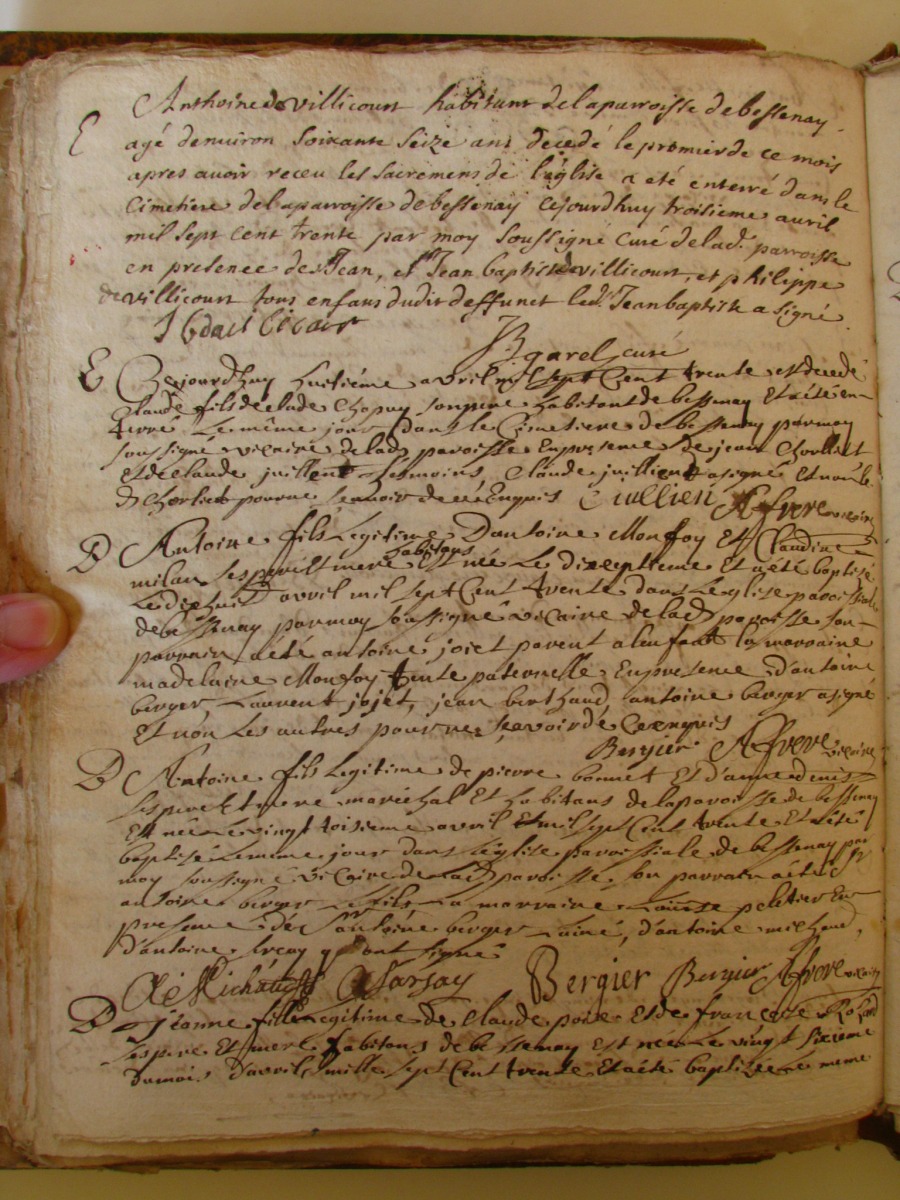 E Anthoine de villicourt habitant de la parroisse de bessenay
agé denuiron soixante seize ans decedé le premier de ce mois
apres auoir receu les sacremens de l'église a eté enterré dans le
cimetiere de la parroisse de bessenay cejourdhuy troisieme auril
mil sept cent trente par moy soussigné curé de lad. parroisse
en presence de Jean, et Jean baptiste de villicourt, et philippe
de villicourt tous enfans dudit deffunct led. Jean baptiste a signé
JBgarel curé
E Cejourdhuy huitiéme avril mil sept Cent trente est decedé
Claude fils de clade Chopuy son pere habitant de bessenay Et a été en-
terré Le même jour dans le Cimetiere de bessenay par moy
soussigné vicaire de lad paroisse En presence de jean Chorliet
Et de Claude juillent temoins Claude juillient a signé Et non le
d Chorliet pour ne scavoir de ce Enquis Cuillien AFrere vicaire
D Antoine fils Legitime D'antoine Monfoy Et Claudine
milan ses pere Et mere habitans Est née Le dixseptieme Et a été baptisé
Le dixhuit avril mil sept Cent trente dans L'eglise paroissiale
de bessenay par moy soussigné vicaire de lad paroisse son
parrain a été antoine joiet parent a l'enfant la marraine
madelaine Monfoy tente paternelle En presence d'antoine
berger Laurent jojet, jean berthaud, antoine berger a signé
Et non Les autres pour ne scavoir de Ce enquis
Bergier AFrere vicaire
D Antoine fils Legitime de pierre bonnet Et d'anne denis
ses pere Et mere maréchal Et habitans de la paroisse de bessenay
Est née Le vingt toisieme avril mil sept Cent trente Et a été
baptisé Le meme jour dans L'église paroissiale de bessenay par
moy soussigné vicaire de lad paroisse. son parrain a été Sr
antoine berger Le fils La marraine peletier En
presence de Sr antoine berger L'ainé, d'antoine michaud,
d'antoine qui ont signé
Michaud ASarsay Bergier Bergier AFrere vicaire
D jeanne fille Legitime de Claude poire Et de francoise
ses pere Et mere habitans de bessenay Est née Le vingt sixieme
du mois d'avril mille sept Cent trente Et a été baptizée Le meme